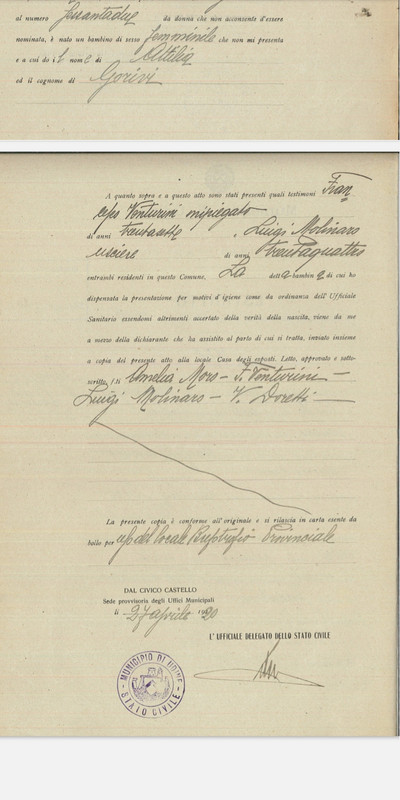 al numero Sessantadue da donna che non acconsente d'essere
nominata, è nato un bambino di sesso femminile che non mi presenta
e a cui do il nome di Attilia
ed il cognome di Gorivi
A quanto sopra e a questo atto sono stati presenti quali testimoni Fran
cesco Venturini impiegato
di anni trentanove, Luigi Molinaro
usciere di anni trentaquattro
entrambi residenti in questo Comune, La detta bambina di cui ho
dispensata la presentazione per motivi d'igiene come da ordinanza dell'Ufficiale
Sanitario essendomi altrimenti accertato della verità della nascita, viene da me
a mezzo della dichiarante che ha assistito al parto di cui si tratta, inviato insieme
a copia del presente atto alla locale Casa degli esposti. Letto, approvato e sotto-
scritto, f.ti Amelia Moro - F. Venturini -
Luigi Molinaro - V. Doretti -
La presente copia è conforme all'originale e si rilascia in carta esente da
bollo per uso del locale Brefotrofio Provinciale
DAL CIVICO CASTELLO
Sede provvisoria degli Uffici Municipali
li 27 aprile 1920
L'UFFICIALE DELEGATO DELLO STATO CIVILE
MUNICIPIO DI UDINE
STATO CIVILE